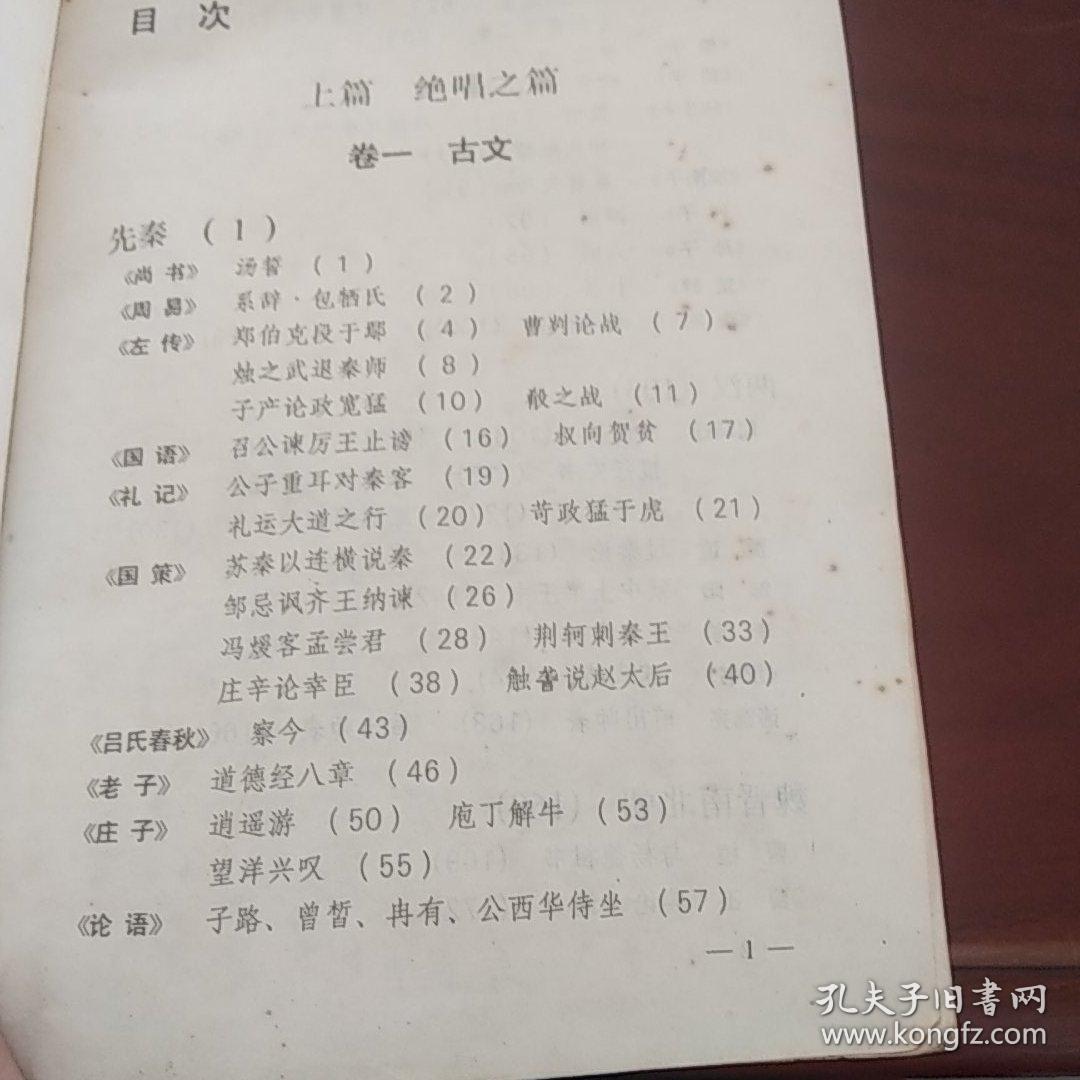 目 次
上篇 绝唱之篇
卷一 古文
先秦 (1)
《尚 书》 汤誓 (1)
《周 易》 系辞·包牺氏 (2)
《左 传》 郑伯克段于鄢 (4) 曹刿论战 (7)
烛之武退秦师 (8)
子产论政宽猛 (10) 殽之战 (11)
《国 语》 召公谏厉王止谤 (16) 叔向贺贫 (17)
《礼 记》 公子重耳对秦客 (19)
礼运大道之行 (20) 苛政猛于虎 (21)
《国 策》 苏秦以连横说秦 (22)
邹忌讽齐王纳谏 (26)
冯煖客孟尝君 (28) 荆轲刺秦王 (33)
庄辛论幸臣 (38) 触詟说赵太后 (40)
《吕氏春秋》 察今 (43)
《老 子》 道德经八章 (46)
《庄 子》 逍遥游 (50) 庖丁解牛 (53)
望洋兴叹 (55)
《论 语》 子路、曾皙、冉有、公西华侍坐 (57)
— 1 —
孔夫子旧书网
www.kongfz.com